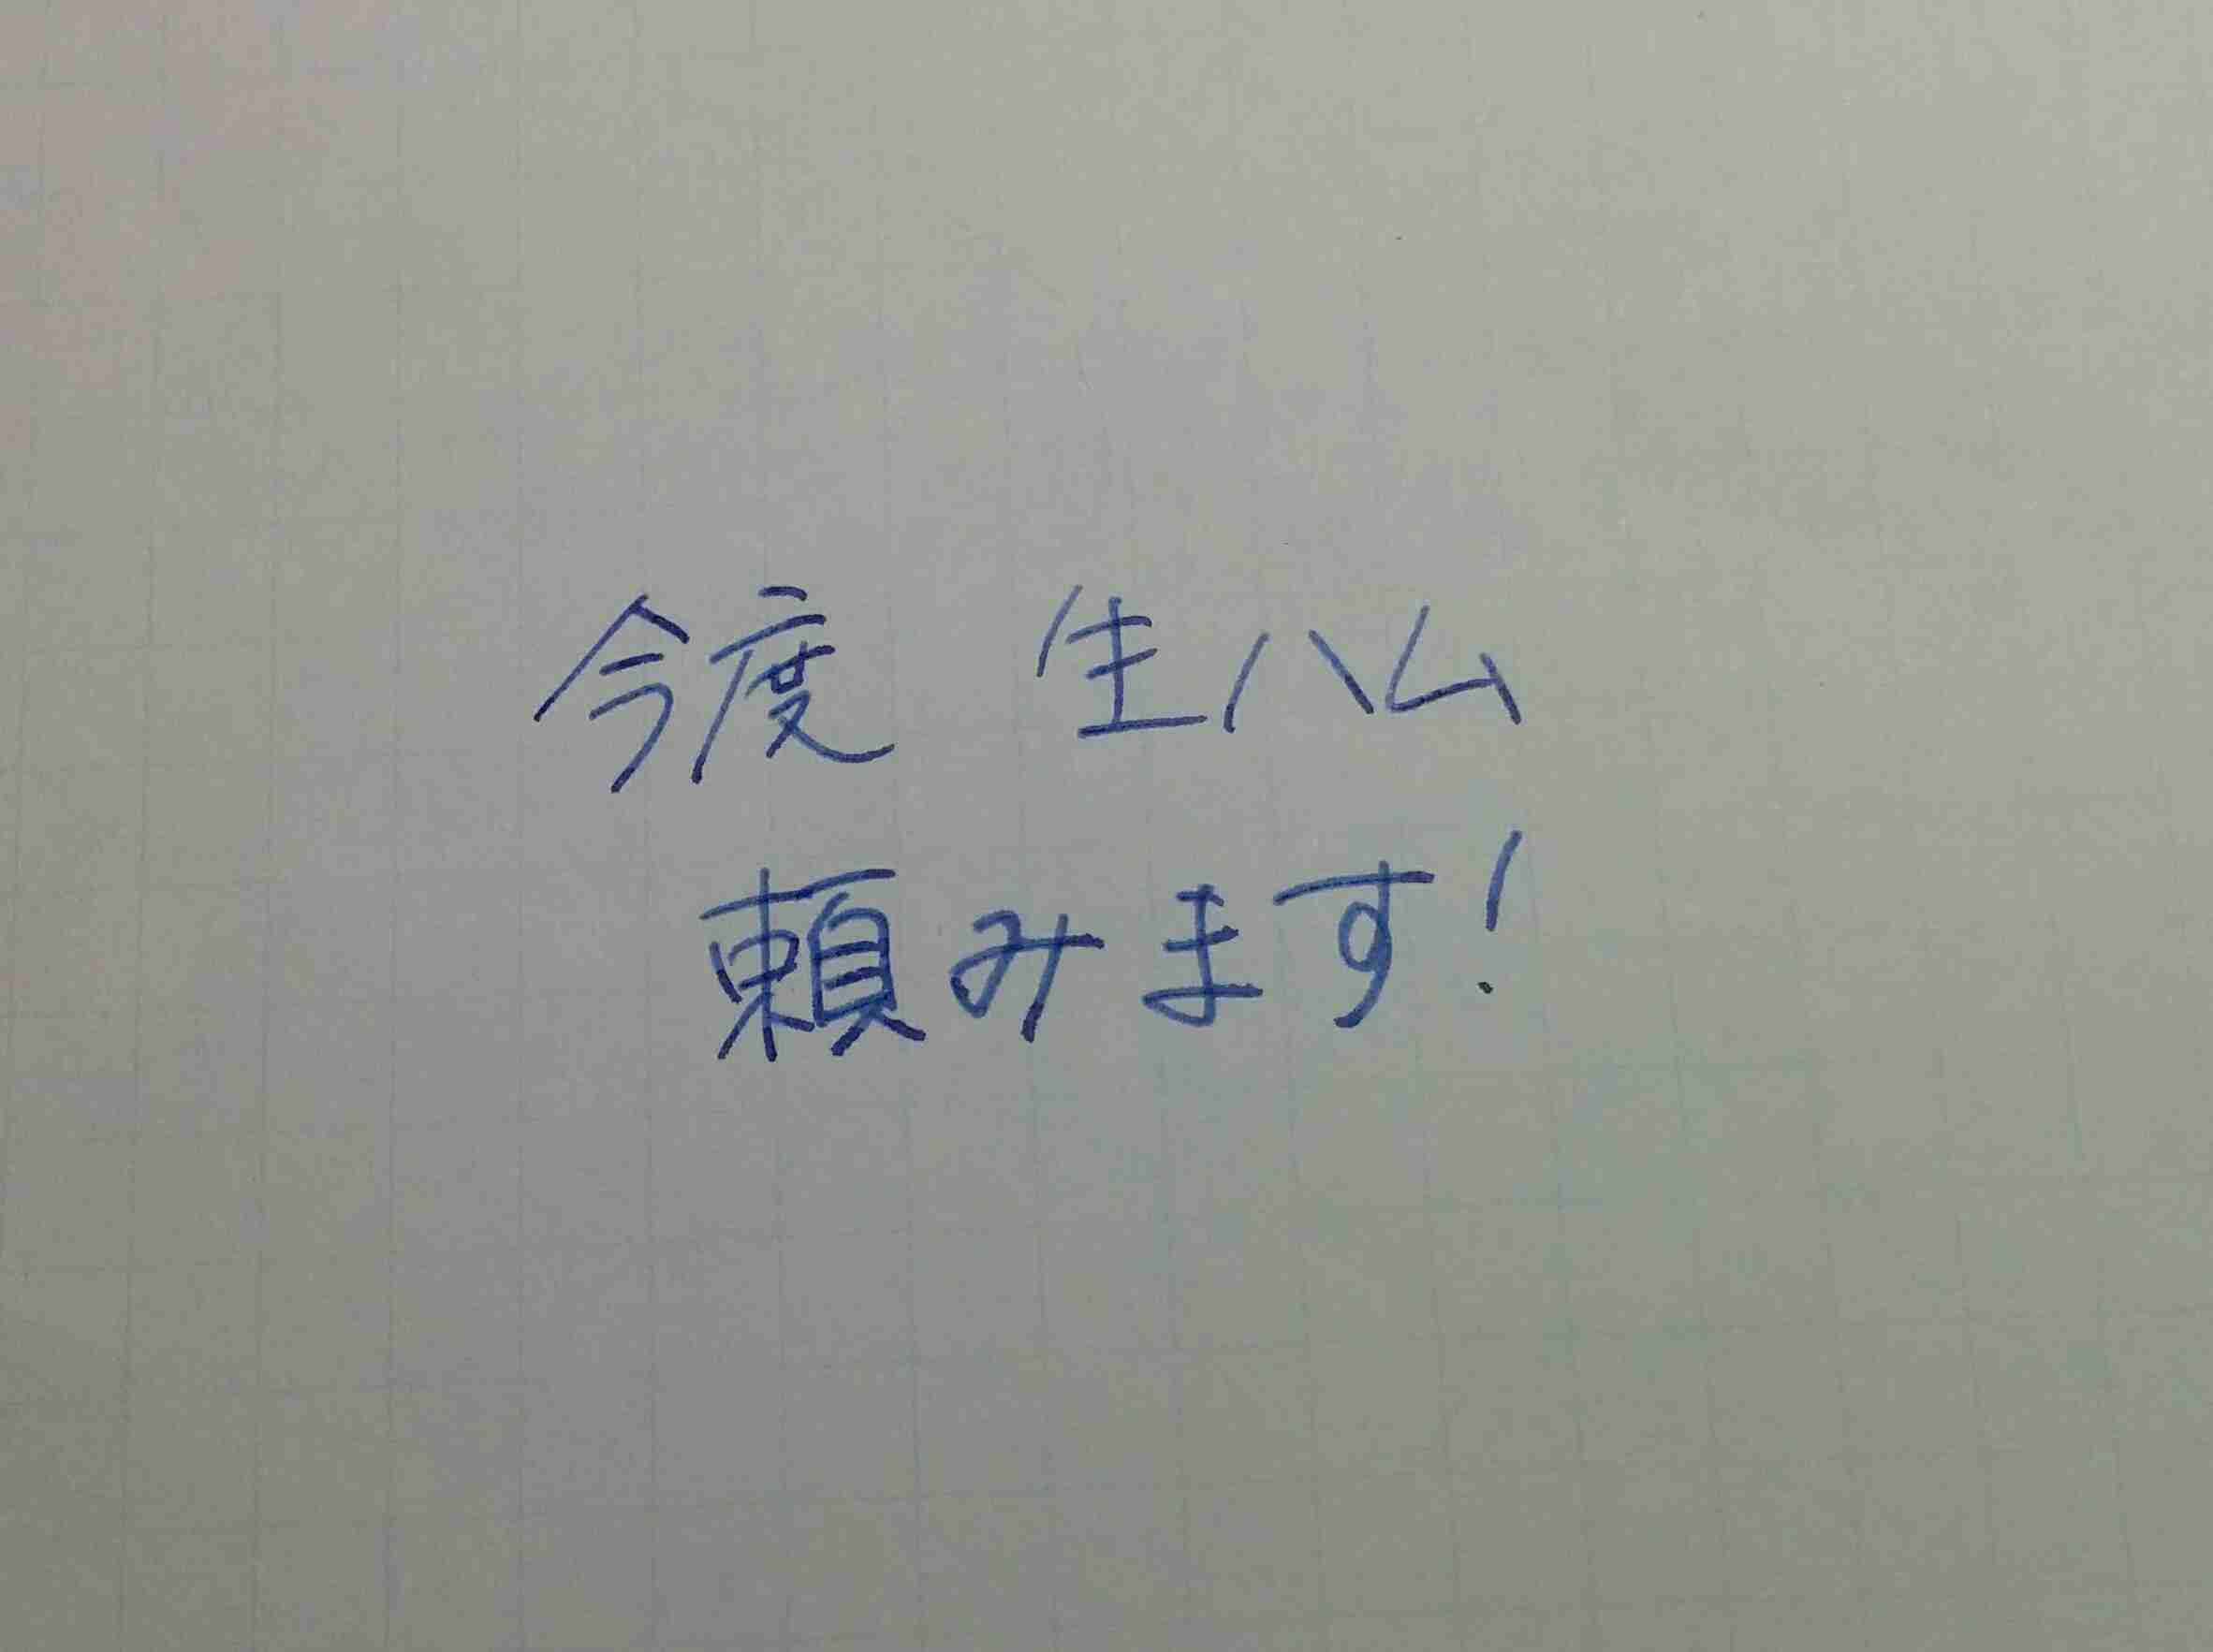 今度 生ハム
頼みます!